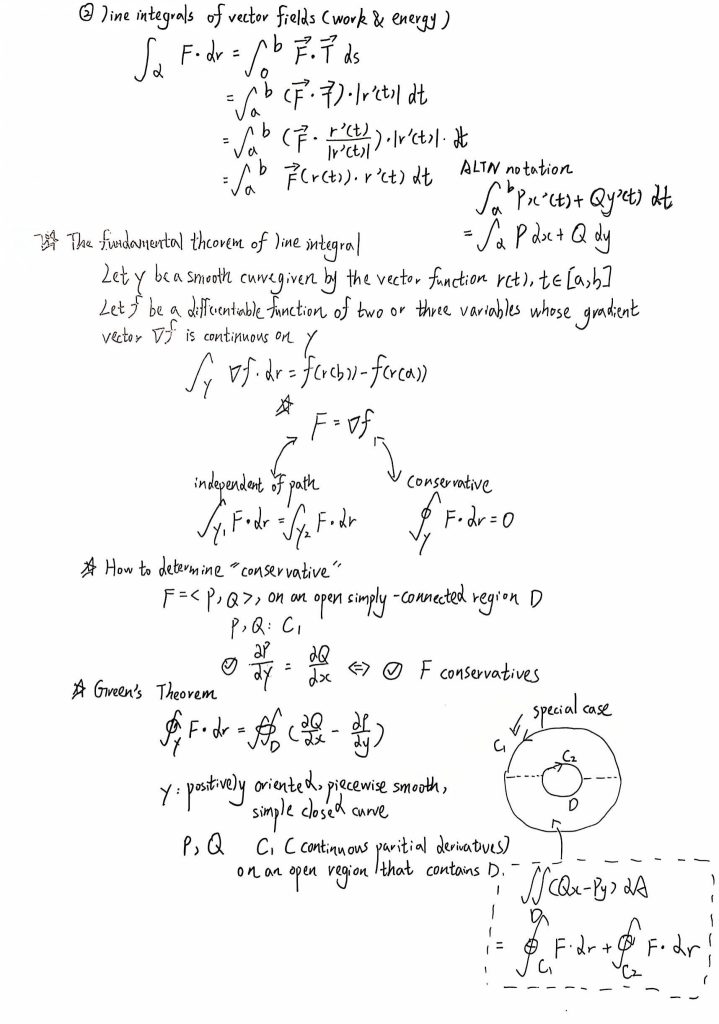 ② line integrals of vector fields (work & energy)
∫_α F·dr = ∫_0^b F⃗·T⃗ ds
= ∫_a^b (F⃗·T⃗)·|r'(t)| dt
= ∫_a^b (F⃗· r'(t)/|r'(t)|)·|r'(t)|· dt
= ∫_a^b F⃗(r(t))·r'(t) dt
ALTN notation
∫_a^b Px'(t)+Qy'(t) dt
= ∫_α P dx + Q dy
☆ The fundamental theorem of line integral
Let γ be a smooth curve given by the vector function r(t), t∈[a,b]
Let f be a differentiable function of two or three variables whose gradient
vector ∇f is continuous on γ
∫_γ ∇f·dr = f(r(b))-f(r(a))
☆
F = ∇f
independent of path
conservative
∫_γ₁ F·dr = ∫_γ₂ F·dr
∮_γ F·dr = 0
☆ How to determine "conservative"
F=<P,Q>, on an open simply-connected region D
P,Q: C₁
✓ ∂P/∂y = ∂Q/∂x ⇔ ✓ F conservatives
☆ Green's Theorem
∮_γ F·dr = ∯_D (∂Q/∂x - ∂P/∂y)
γ: positively oriented, piecewise smooth,
simple closed curve
P, Q C₁ (continuous paritial derivatives)
on an open region that contains D.
special case
C₁
C₂
D
∬_D (Qx-Py) dA
= ∮_C₁ F·dr + ∮_C₂ F·dr